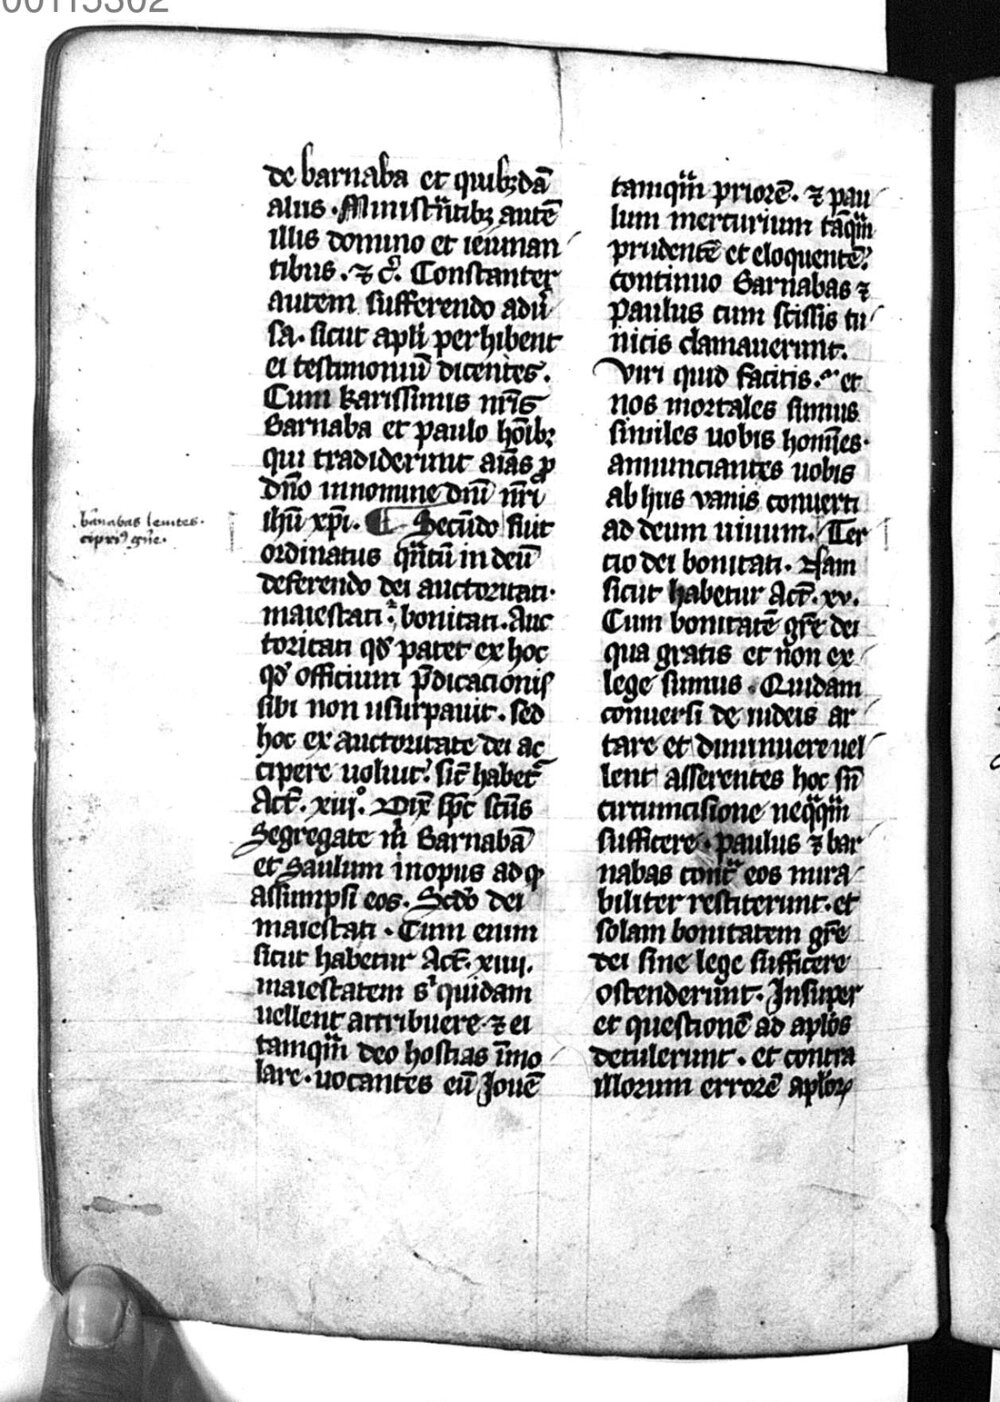 00115302
de barnaba et quibꝫdā
aliis . Ministrātibꝫ autē
illis domino et ieiunan
tibus . ⁊ cͣ. Constanter
autem sufferendo aduͥ
sa . sicut apli perhibent
ei testimoniū dicentes .
Cum karissimis nr̄is
Barnaba et paulo hoībꝫ
qui tradiderunt aīas ꝓ
dn̄o in nomine dn̄i nr̄i
ihū xp̄i . Secūdo fuit
ordinatus qn̄tū in deū
deferendo dei auctoritati .
maiestati ⁊ bonitati . Auc
toritati qd̄ patet ex hoc
qd̄ officium p̄dicacionis
sibi non usurpauit . sed
hoc ex auctoritate dei ac
cipere uoluit . sic̄ habet̄
Act̄ . xiij . Dix̄ sp̄c sc̄us
Segregate m̄ Barnabā
et Saulum in opus ad qͦ
assumpsi eos . Scd̄o dei
maiestati . Cum enim
sicut habetur Act̄ . xiiij .
maiestatem sͥ quidam
uellent attribuere ⁊ ei
tamqͣm deo hostias īmo
lare . uocantes eū Jouē
barnabas leuites .
cipriꝰ gn̄e .
tamqͣm priorē . ⁊ pau
lum mercurium tāqͣm
prudentē et eloquentē .
continuo Barnabas ⁊
paulus cum scissis tu
nicis clamauerunt .
Viri quid facitis . et
nos mortales sumus
similes uobis homīes .
annunciantes uobis
ab hiis vanis conuerti
ad deum uiuum . Ter
cio dei bonitati . Nam
sicut habetur Act̄ . xv .
Cum bonitatē gr̄e dei
qua gratis et non ex
lege sumus . Quidam
conuersi de iudeis ar
tare et diminuere uel
lent asserentes hoc sn̄
circumcisione neqͣqͣm
sufficere . paulus ⁊ bar
nabas contͣ eos mira
biliter restiterunt . et
solam bonitatem gr̄e
dei sine lege sufficere
ostenderūnt . Insuper
et questionē ad apl̄os
detulerunt . et contra
illorum errorē apl̄oꝝ